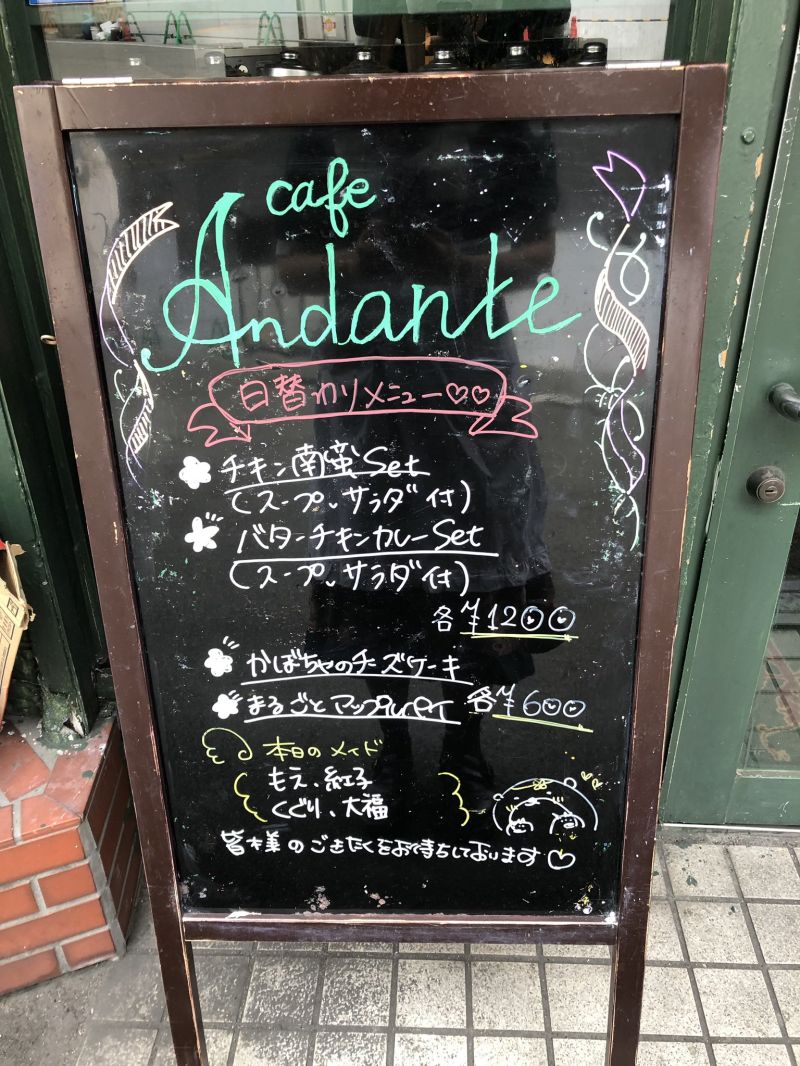 cafe
Andante
日替わりメニュー♡♡
チキン南蛮 Set
(スープ、サラダ付)
バターチキンカレー Set
(スープ、サラダ付)
各¥1200
かぼちゃのチーズケーキ
まるごとアップルパイ 各¥600
本日のメイド
もえ、紅子
くどり、大福
皆様のごきたくをお待ちしております♡